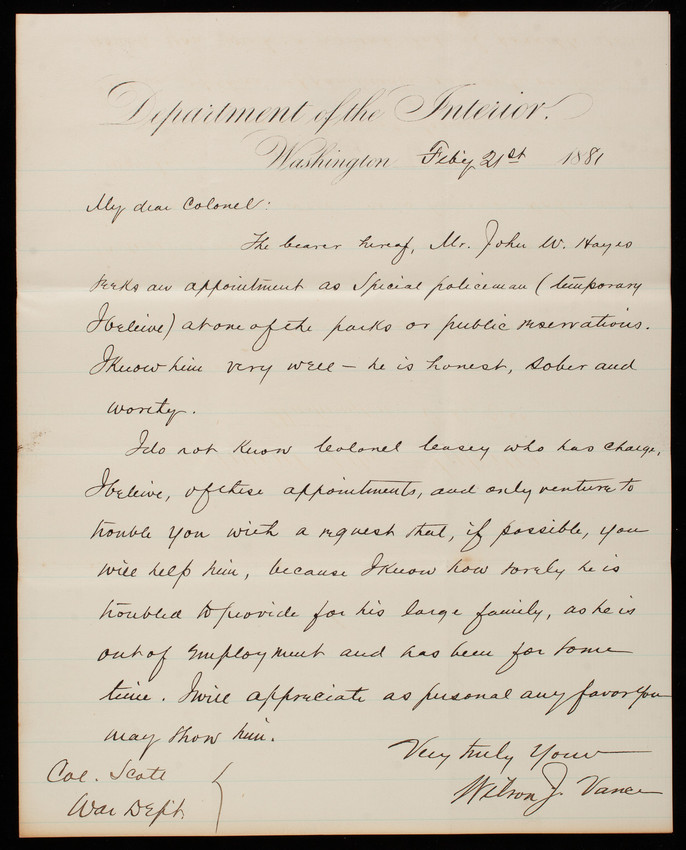 Department of the Interior.
Washington Feb'y 21st 1881
My dear Colonel:
The bearer hereof, Mr. John W. Hayes
seeks an appointment as Special policeman (temporary
I beleive) at one of the parks or public reservations.
I know him very well – he is honest, sober and
worthy.
I do not know Colonel Casey who has charge,
I beleive, of these appointments, and only venture to
trouble you with a request that, if possible, you
will help him, because I know how sorely he is
troubled to provide for his large family, as he is
out of employment and has been for some
time. I will appreciate as personal any favor you
may show him.
Very truly Yours
Wilson J. Vance
Col. Scott
War Dept.